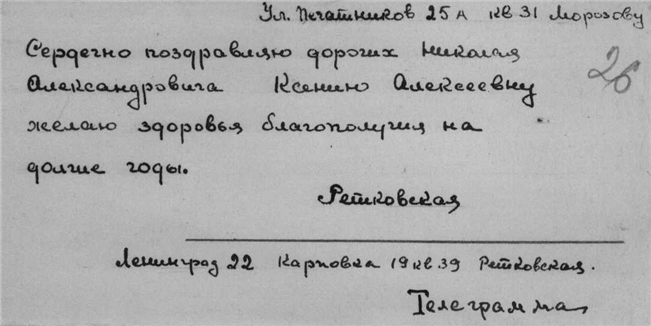 Ул. Печатников 25А кв 31 Морозову
Сердечно поздравляю дорогих Николая
Александровича Ксению Алексеевну
26
желаю здоровья благополучия на
долгие годы.
Ретковская
Ленинград 22 Карповка 19 кв 39 Ретковская.
Телеграмма